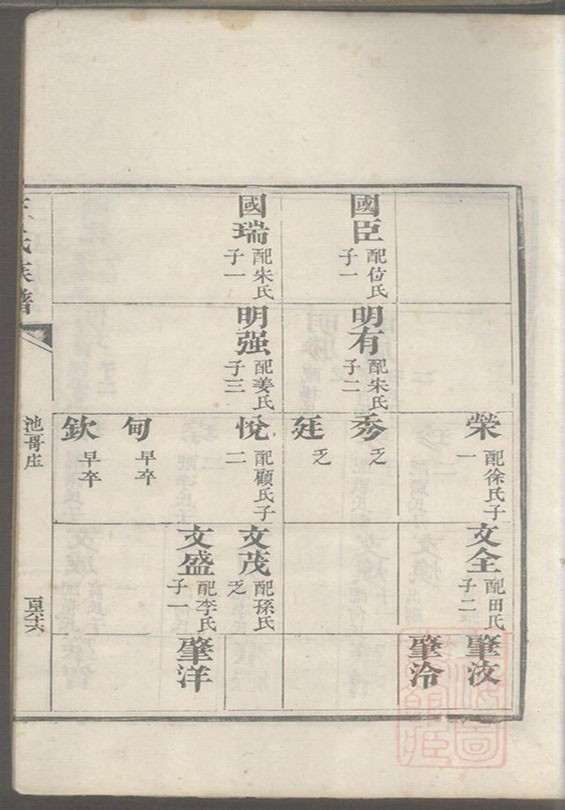 國臣 配位氏子一
國瑞 配朱氏子一
明有 配朱氏子二
明强 配姜氏子三
榮 配徐氏子一
秀 乏
廷 乏
悅 配顧氏子二
甸 早卒
欽 早卒
文全 配田氏子二
文茂 配孫氏乏
文盛 配李氏子一
肇汶
肇泠
肇洋
氏族譜
池哥庄